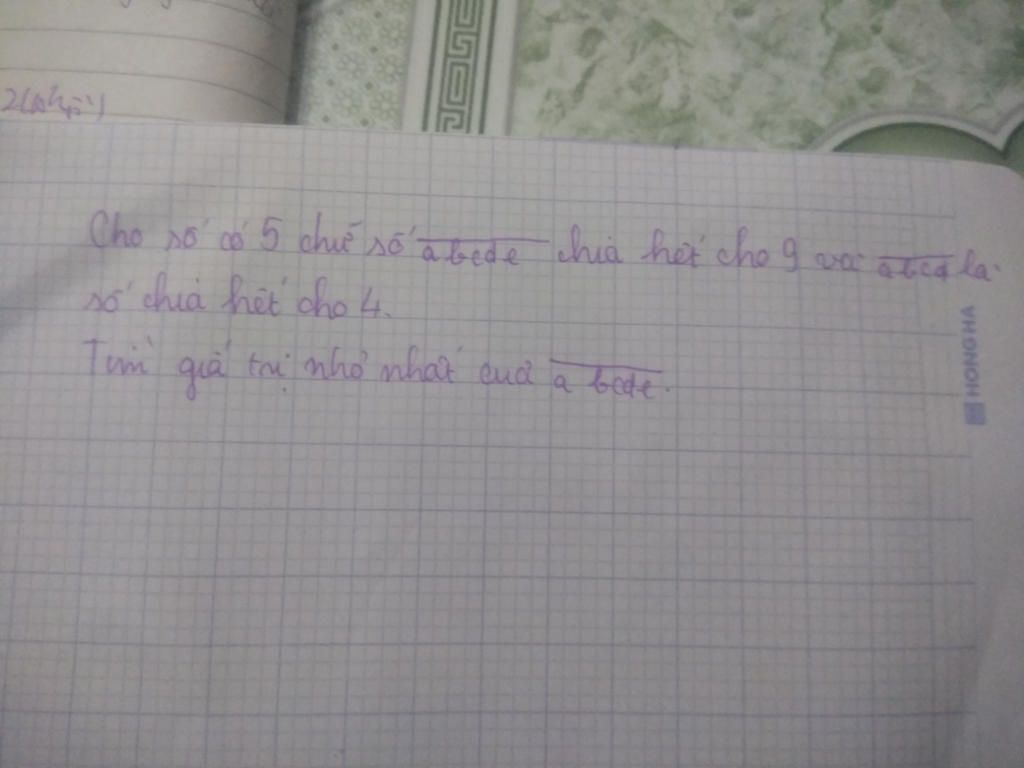 2(nhp)
Cho số có 5 chữ số abcde chia hết cho 9 và abcd là
số chia hết cho 4.
Tìm giá trị nhỏ nhất của abcde.
HONG HA